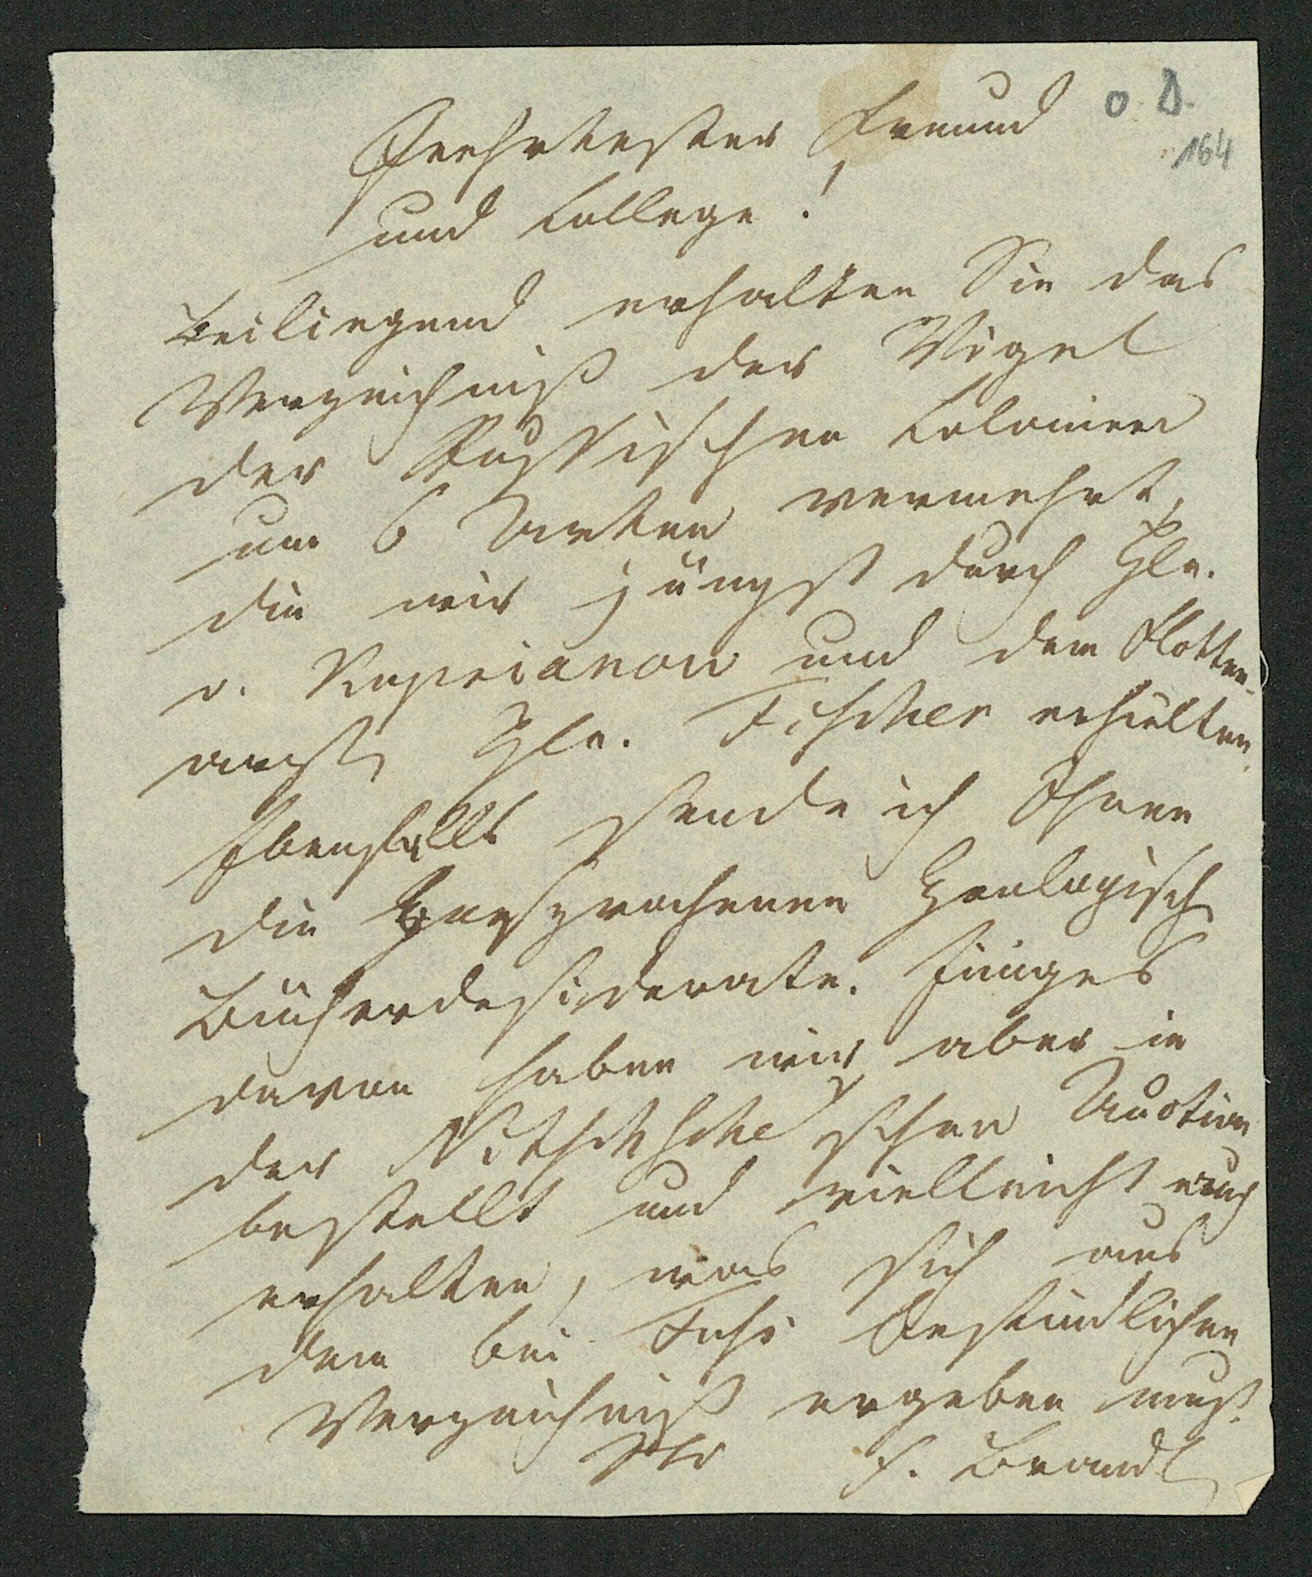 o. D.
164
Geehrtester Freund
und College!
Beiliegend erhalten Sie das
Verzeichniß der Vögel
der Russischen Colonieen
um 6 Arten vermehrt,
die wir jüngst durch Hln.
v. Kuprianow und dem Flotten-
arzt Hln. Fischer erhielten.
Ebenfalls sende ich Ihnen
die versprochenen Zoologisch
Bücherdesiderate. Einiges
davon haben wir aber in
der Nitzschschen Auction
bestellt und vielleicht auch
erhalten, was sich aus
dem bei befindlichen
Verzeichniß ergeben muß.
Ihr F. Brandt